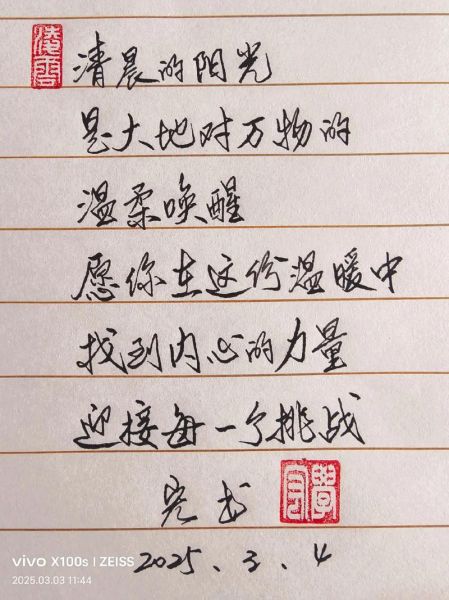 凌云
清晨的阳光
是大地对万物的
温柔唤醒
愿你在这份温暖中
找到内心的力量
迎接每一个挑战
书
2025.3.4
vivo X100s | ZEISS
2025.03.03 11:44